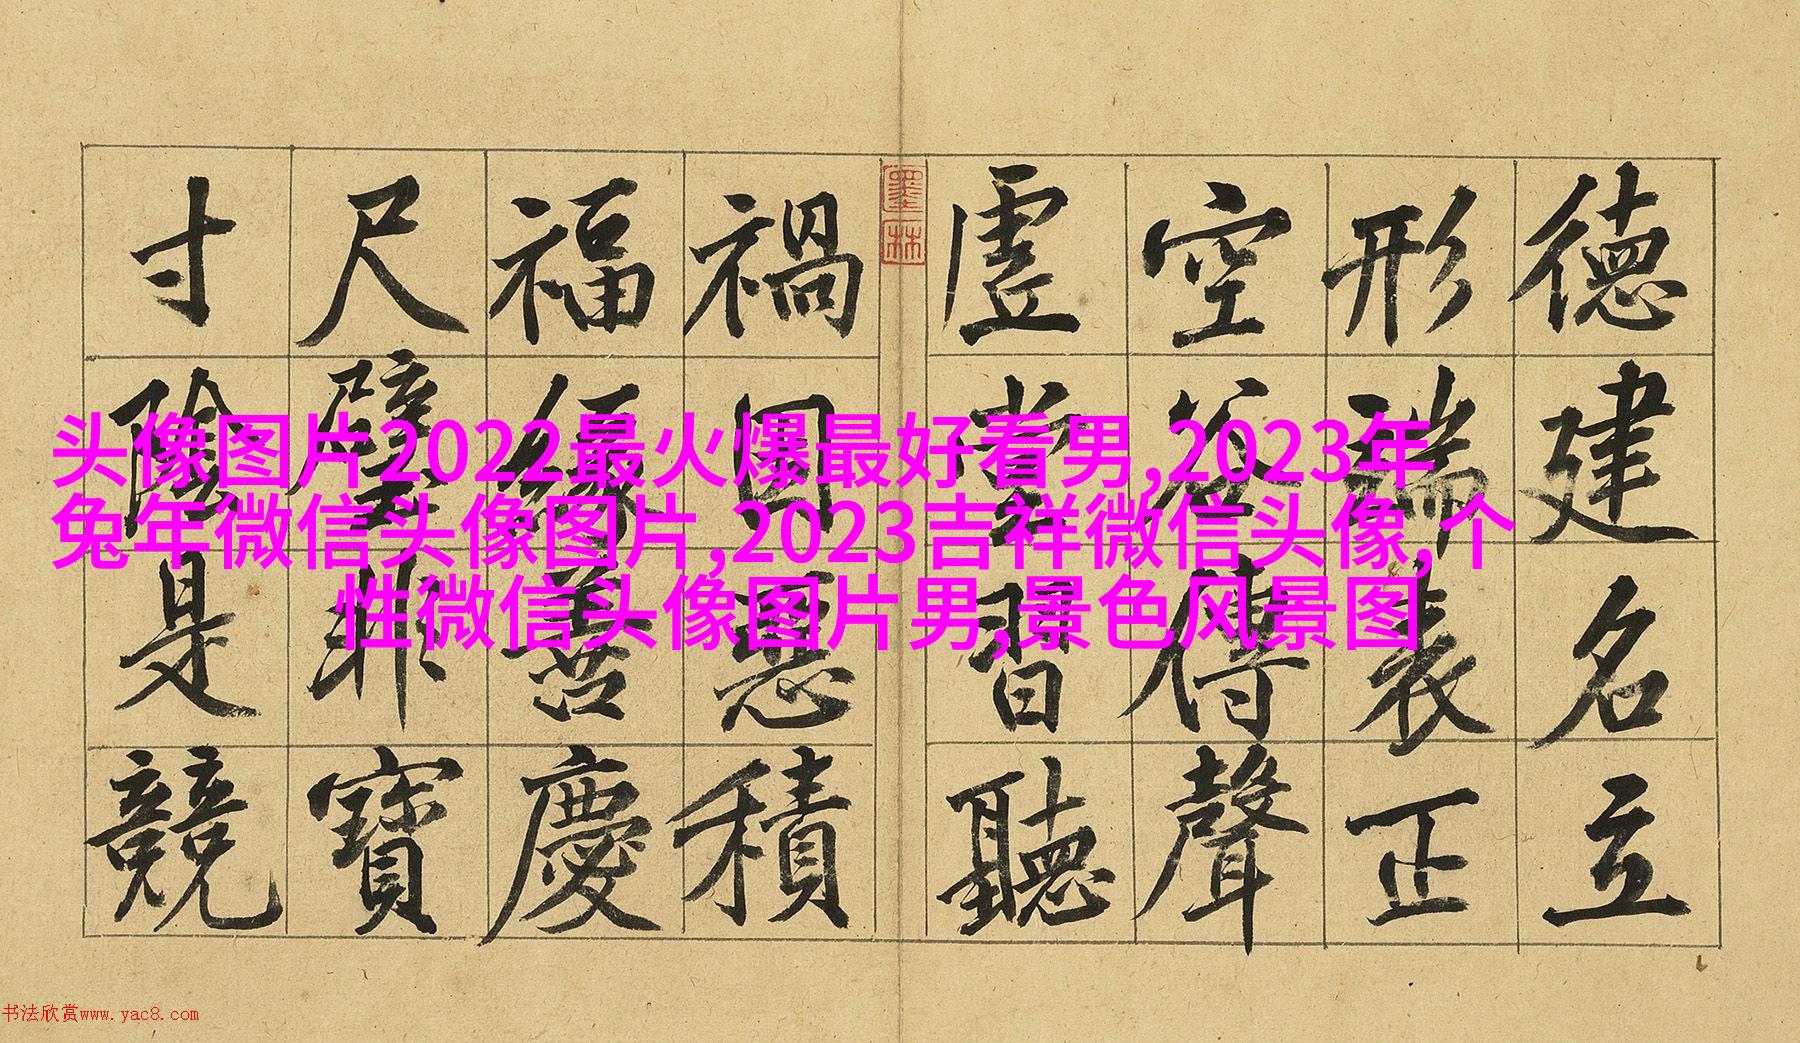 德建名立
形端表正
空谷傳聲
虛堂習聽
墨林
禍因惡積
福緣善慶
尺璧非寶
寸陰是競
头像图片2022最火爆最好看男,2023年
兔年微信头像图片,2023吉祥微信头像,个
性微信头像图片男,景色风景图
书法欣赏www.yac8.com